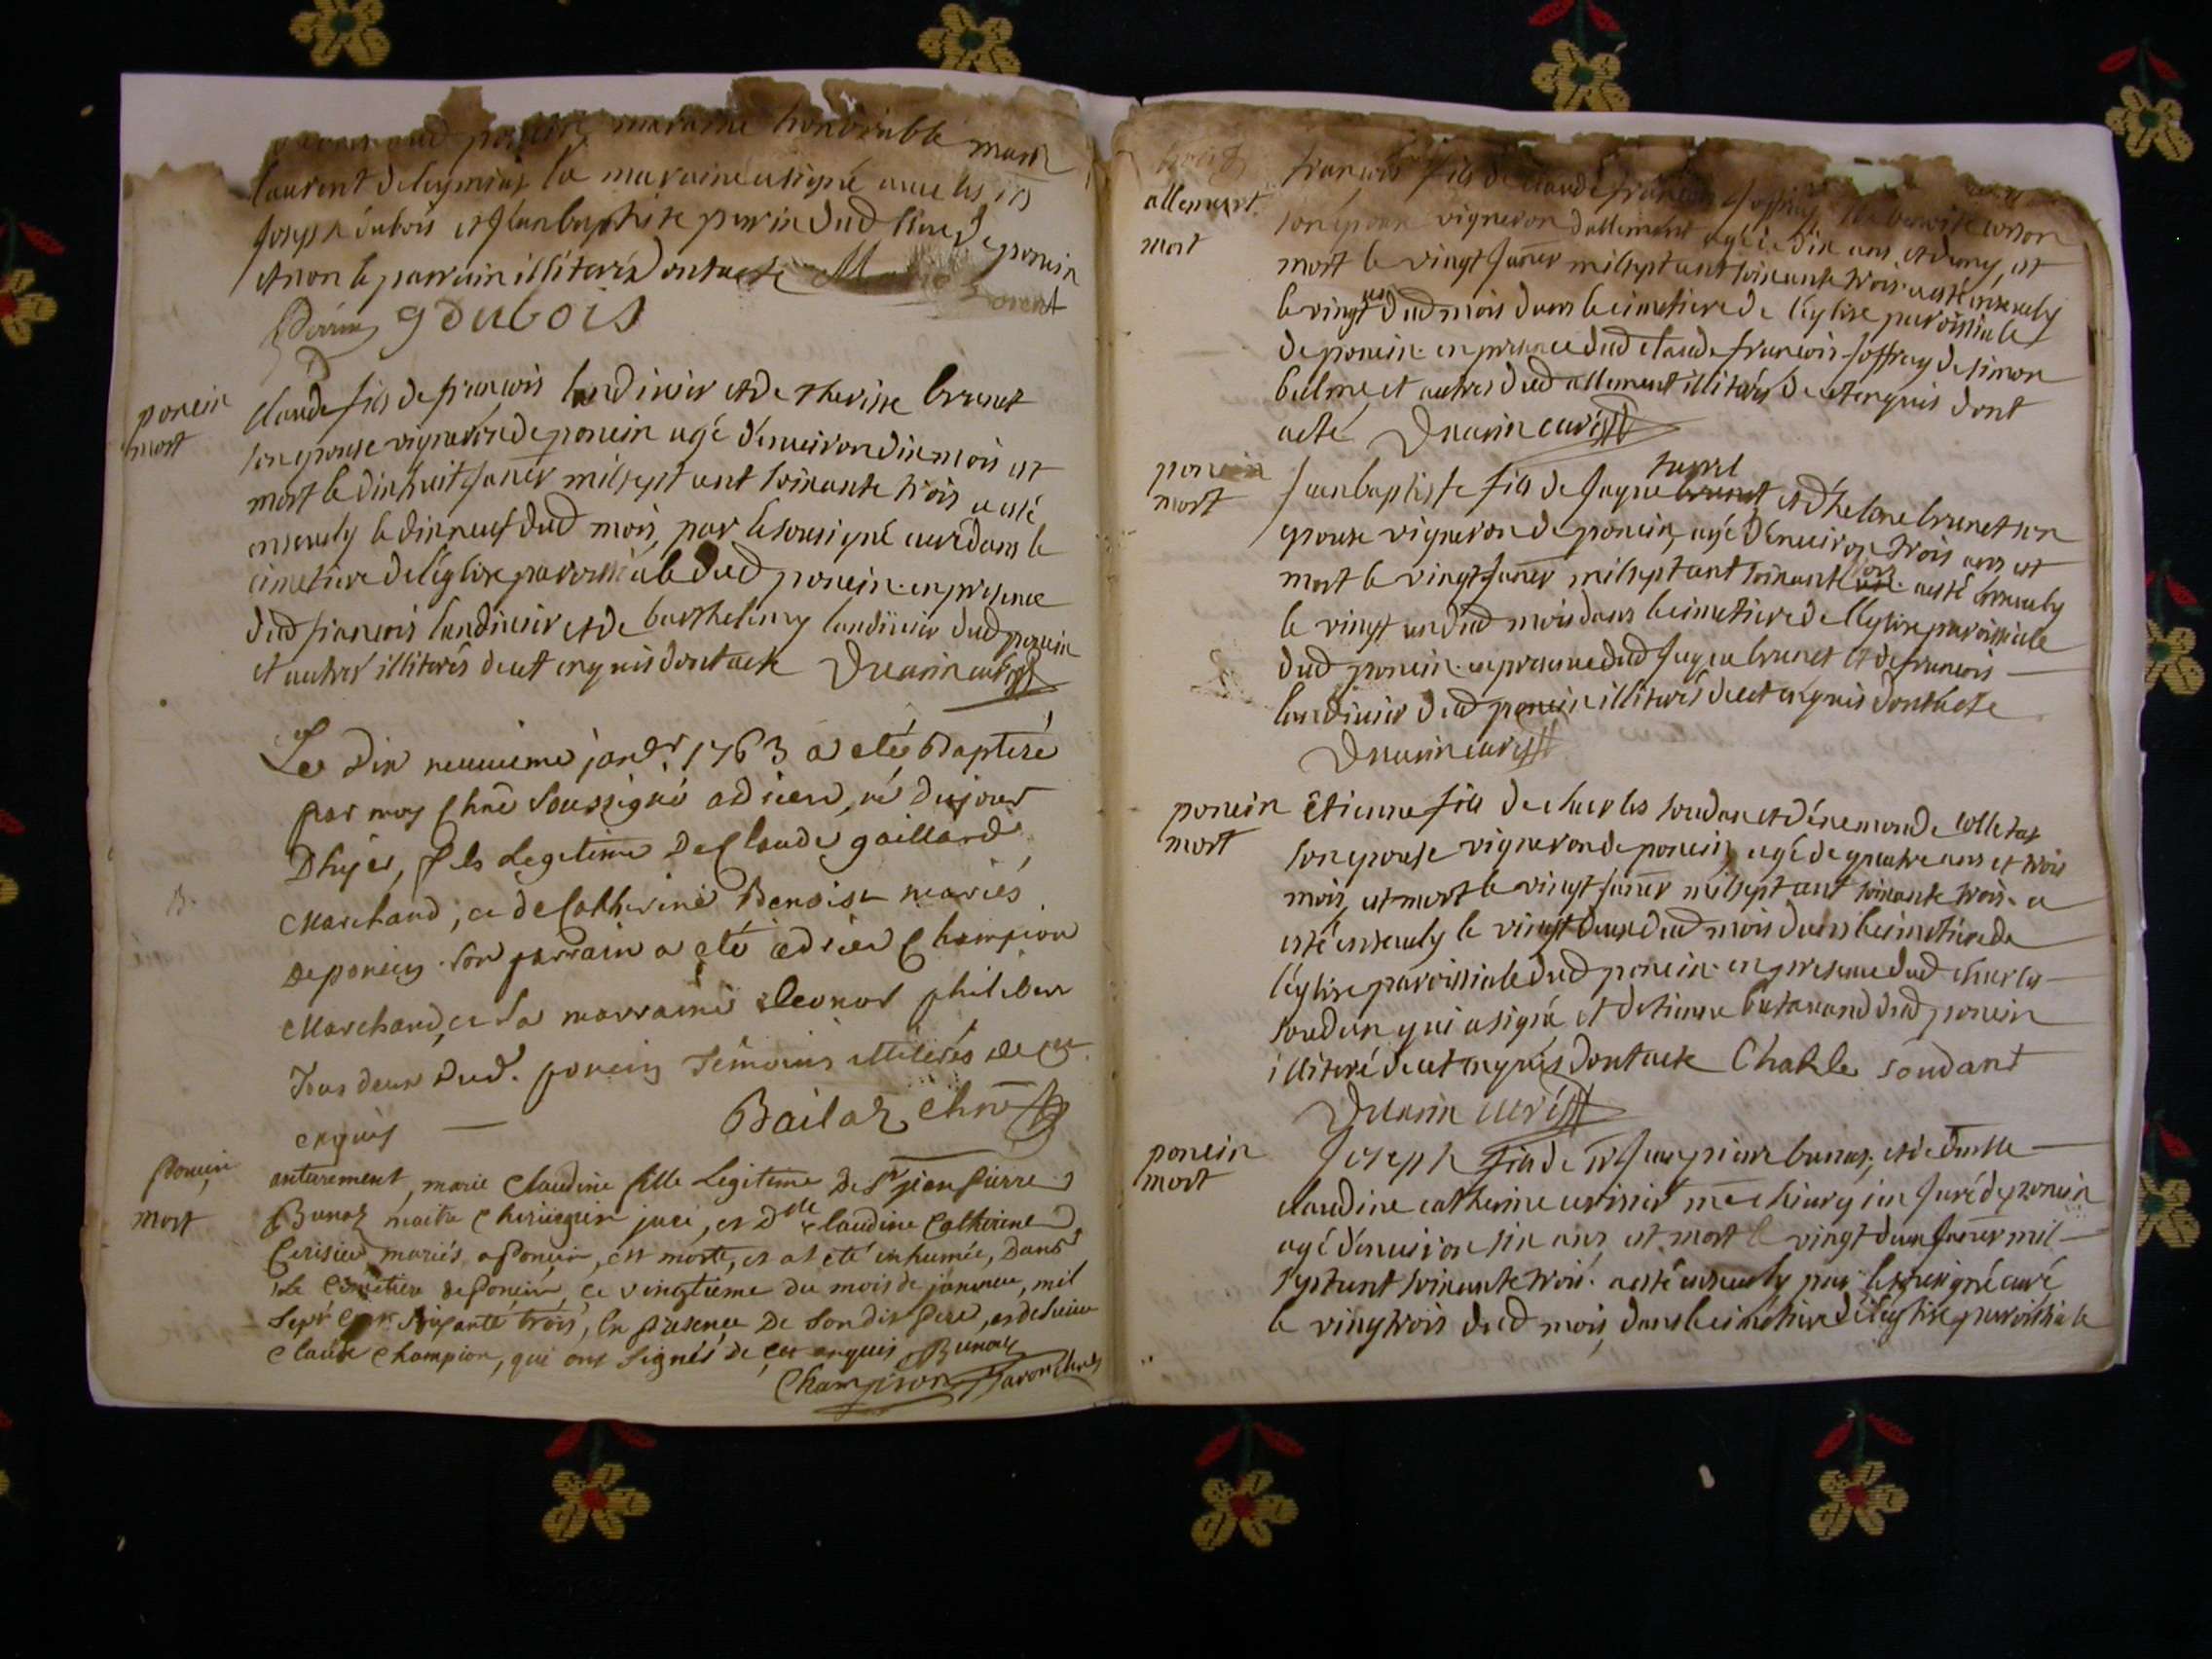 maraine honorable marie
laurent deleymiat la maraine a signé avec les srs
joseph dubois et jean baptiste perrin dud lieu de poncin
et non le parrain illiterés dont acte Marie Lorent
Perrin J Dubois
poncin
mort
claude fils de francois landinier et de therisse brunet
son epouse vigneron de poncin agé d'enuiron dix mois est
mort le dix huit janer mil sept cent soixante trois a esté
enseuely le dix neuf dud mois, par le sousigné curé dans le
cimetiere de l'eglise paroissiale dud poncin. en presence
dud francois landinier et de barthelemy landinier dud poncin
et autres illiterés de cet enquis dont acte Druarin curé
Le dix neuuieme janr. 1763 a eté Baptisé
par moy chne soussigné adrien, né du jour
D'hyer, fils Legitime De Claude gaillard
Marchand, et de Catherine Benoist mariés
de poncin. son parrain a eté adrien Champion
Marchand, et La marraine Leonor philibert
Tous deux dud. poncin Témoins illiterés de ce
enquis — Bailar chne
Poncin
Mort
enterement, marie Claudine fille Legitime De Sr jean Pierre
Bunoz maitre chirurgien juré, et Dlle claudine Catherine
Cerisier mariés a Poncin, est morte, et at eté inhumée, Dans
Le Cimetiere de Poncin, ce vingtieme du mois de janvier, mil
Sept Cent soixante trois, En Presence De Son dit Pere, et de sieur
Claude Champion, qui ont Signés de ce enquis Bunoz
Champion
allement
mort
francois fils de claude francois joffray
son epouse vigneron d'allement agé de dix ans et demy, est
mort le vingt janer mil sept cent soixante trois a esté enseuely
le vingt un dud mois dans le cimetiere de l'eglise paroissiale
de poncin. en presence dud claude francois joffray de simon
balme, et autres dud allement illiterés de cet enquis dont
acte Druarin curé
poncin
mort
jean baptiste fils de jaque brunet et d'helene brunet son
epouse vigneron de poncin, agé d'enuiron trois ans est
mort le vingt janer mil sept cent soixante trois a esté enseuely
le vingt un dud mois dans le cimetiere de l'eglise paroissiale
dud poncin. en presence dud jaque brunet et de francois —
landinier dud poncin illiterés de cet enquis dont acte
Druarin curé
poncin
mort
êtienne fils de charles soudan et d'enemonde colletaz
son epouse vigneron de poncin, agé de quatre ans et trois
mois, est mort le vingt janer mil sept cent soixante trois. a
esté enseuely le vingt deux dud mois dans le cimetiere de
l'eglise paroissiale dud poncin. en presence dud charles —
soudan qui a signé et d'etienne dud poncin
illiteré de cet enquis dont acte Charle soudant
Druarin curé
poncin
mort
joseph fils de sr jean pierre bunoz, et de dmlle —
claudine catherine cerisier me chirurgien juré de poncin
agé d'enuiron six ans, est mort le vingt deux janer mil —
sept cent soixante trois. a esté enseuely par le sousigné curé
le vingt trois dud mois, dans le cimetiere de l'eglise paroissiale